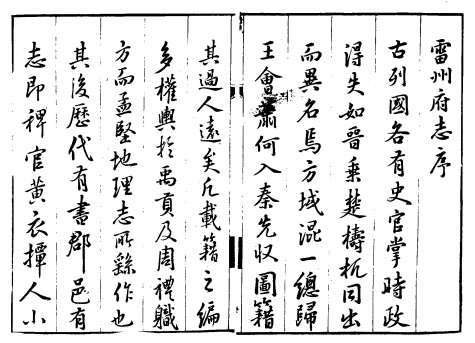 雷州府志序
古列國各有史官掌時政
得失如晉乗楚檮杌同出
而異名焉方域混一總歸
王會蕭何入秦先収圖籍
其過人遠矣凡載籍之編
多權輿於禹貢及周禮職
方而孟堅地理志所繇作也
其後歷代有書郡邑有
志即稗官黄衣撢人小